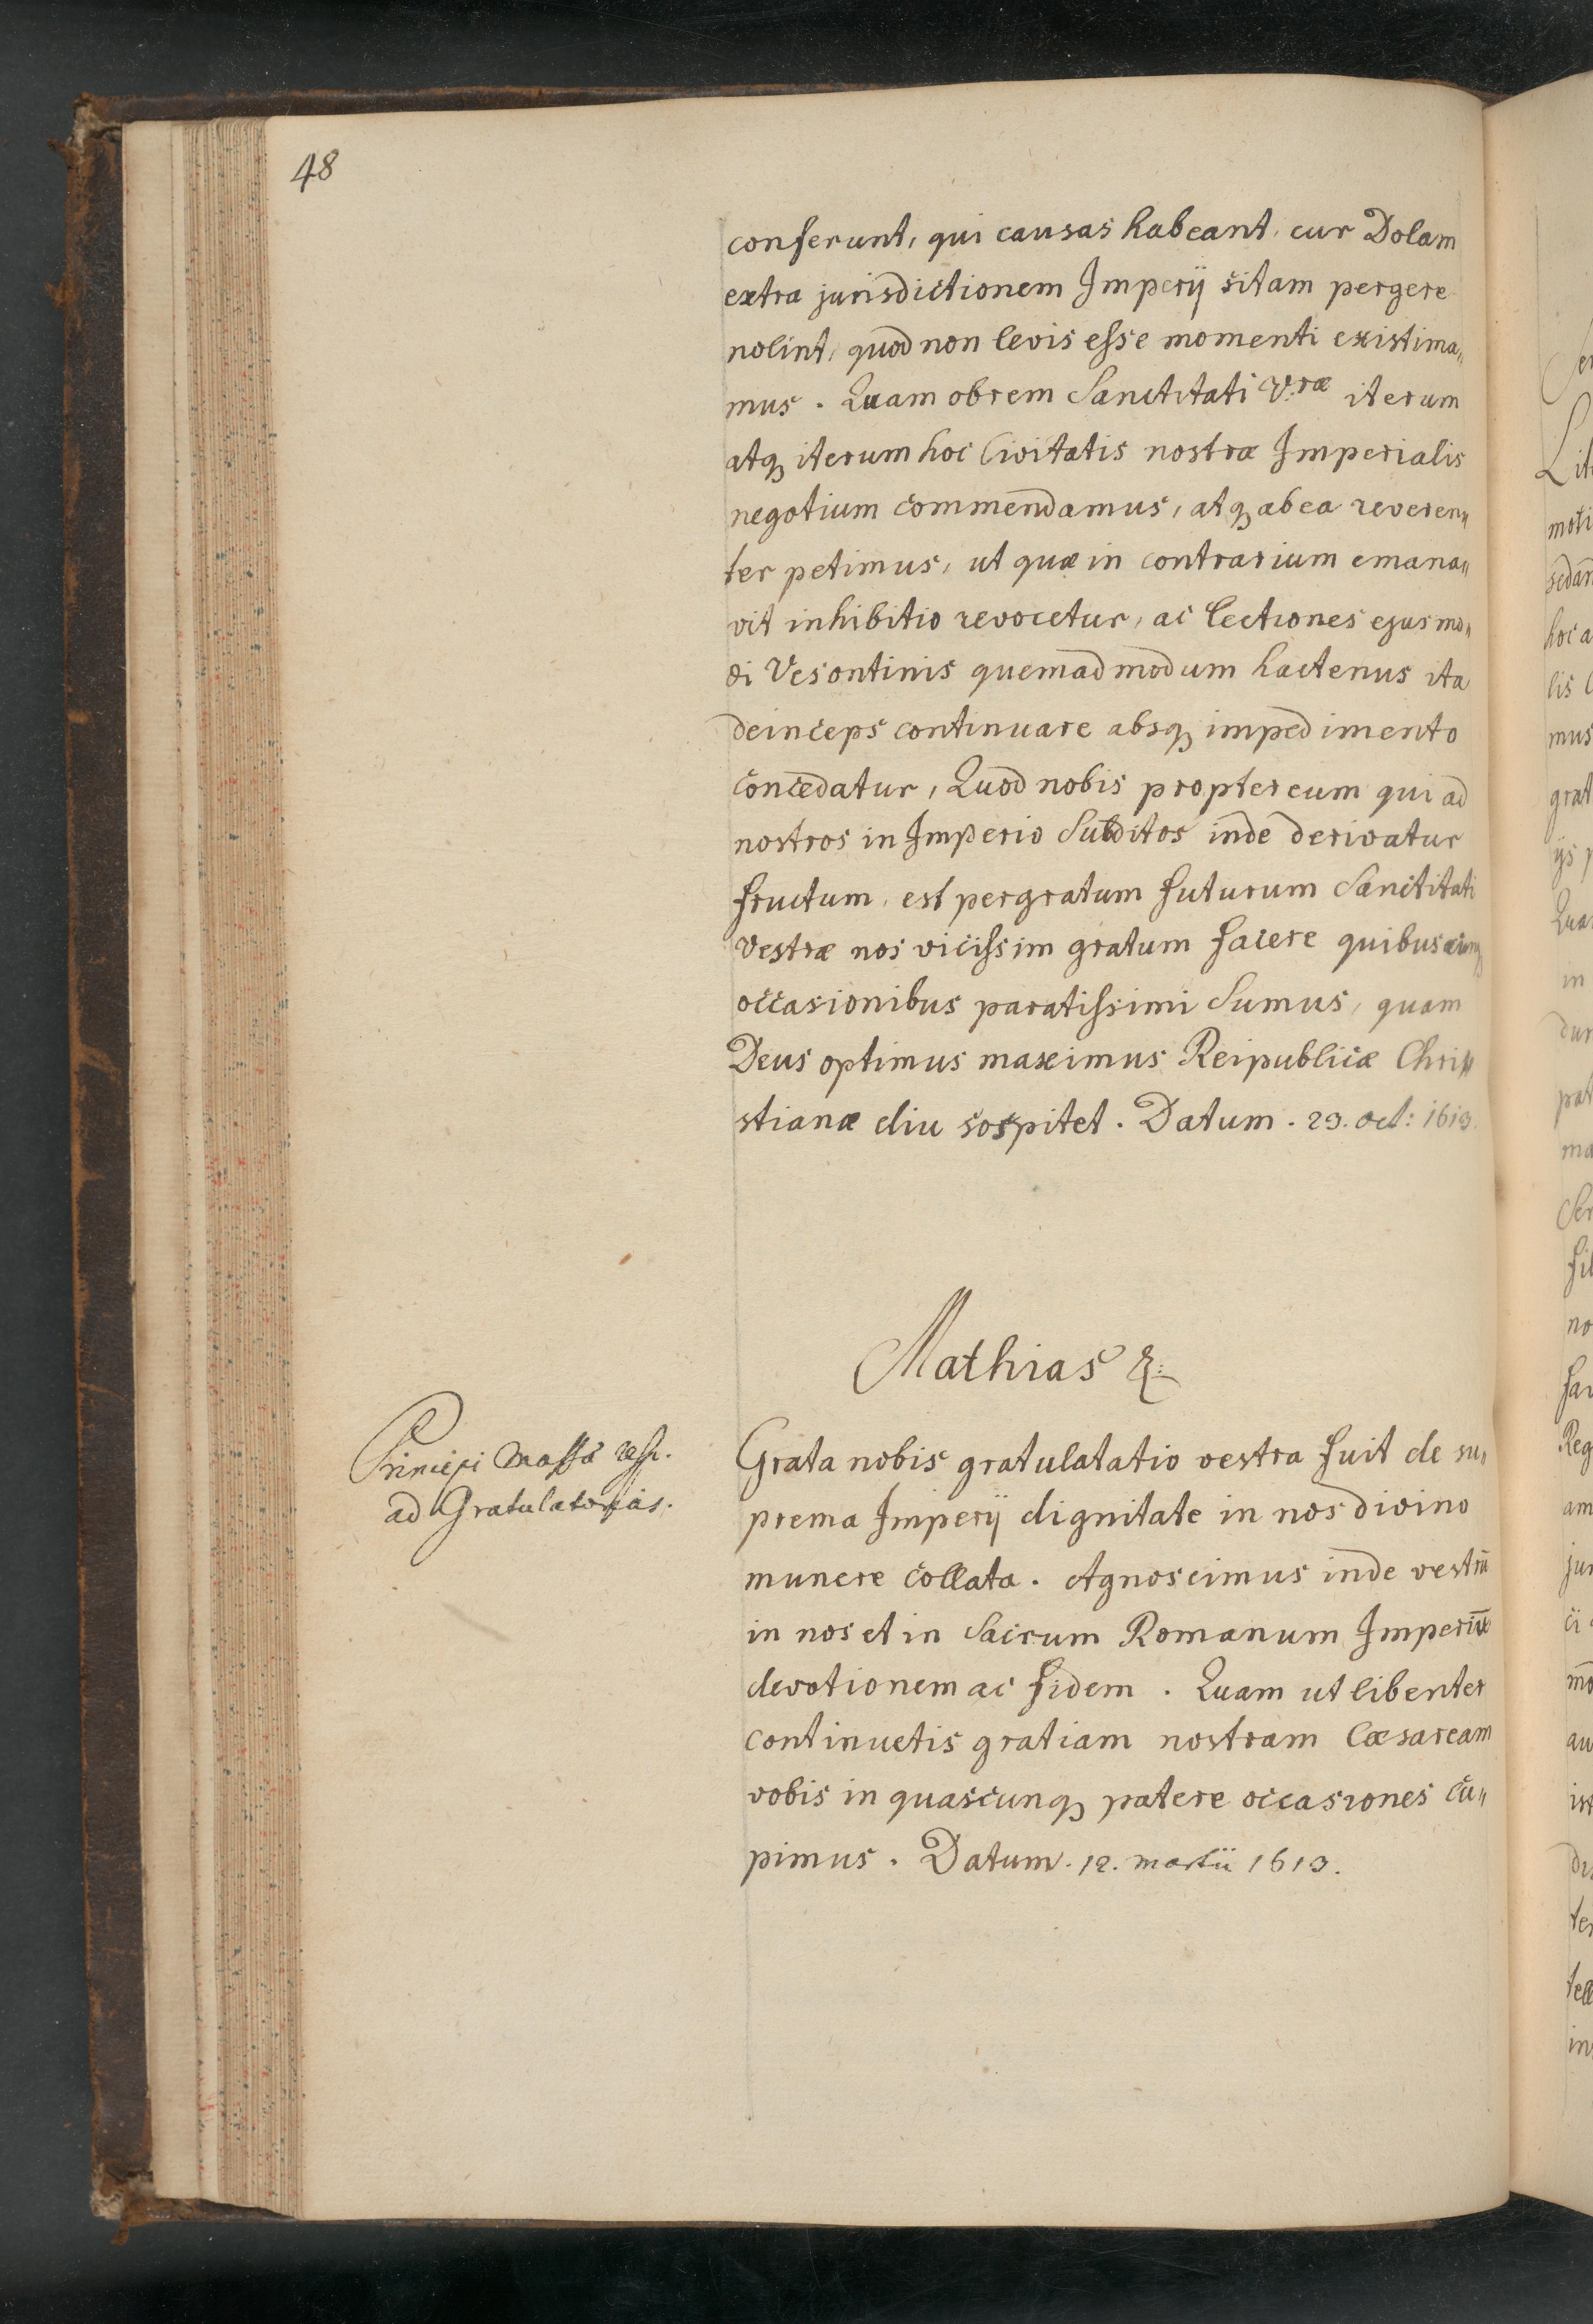 48
conferunt, qui causas habeant, cur Dolam
extra jurisdictionem Imperij sitam pergere
nolint, quod non levis esse momenti existima„
mus. Quam obrem Sanctitati V:ræ iterum
atq3 iterum hoc Civitatis nostræ Imperialis
negotium commendamus, atq3 ab ea reveren„
ter petimus, ut quæ in contrarium emana„
vit inhibitio revocetur, ac lectiones ejusmo„
di Vesontinis quemadmodum hactenus ita
deinceps continuare absq3 impedimento
concedatur, Quod nobis propter eum qui ad
nostros in Imperio Subditos inde derivatur
fructum, est pergratum futurum Sanctitati
vestræ nos vicissim gratum facere quibuscunq3
occasionibus paratissimi Sumus, quam
Deus optimus maximus Reipublicæ Chri„
stianæ diu sospitet. Datum. 23. oct: 1613.
Mathias &:
Principi Massæ resp.
ad Gratulatorias.
Grata nobis gratulatatio vestra fuit de su„
prema Imperij dignitate in nos divino
munere collata. Agnoscimus inde vestrū
in nos et in Sacrum Romanum Imperiū
devotionem ac fidem. Quam ut libenter
continuetis gratiam nostram Cæsaream
vobis in quascunq3 patere occasiones cu„
pimus. Datum. 12. martii 1613.